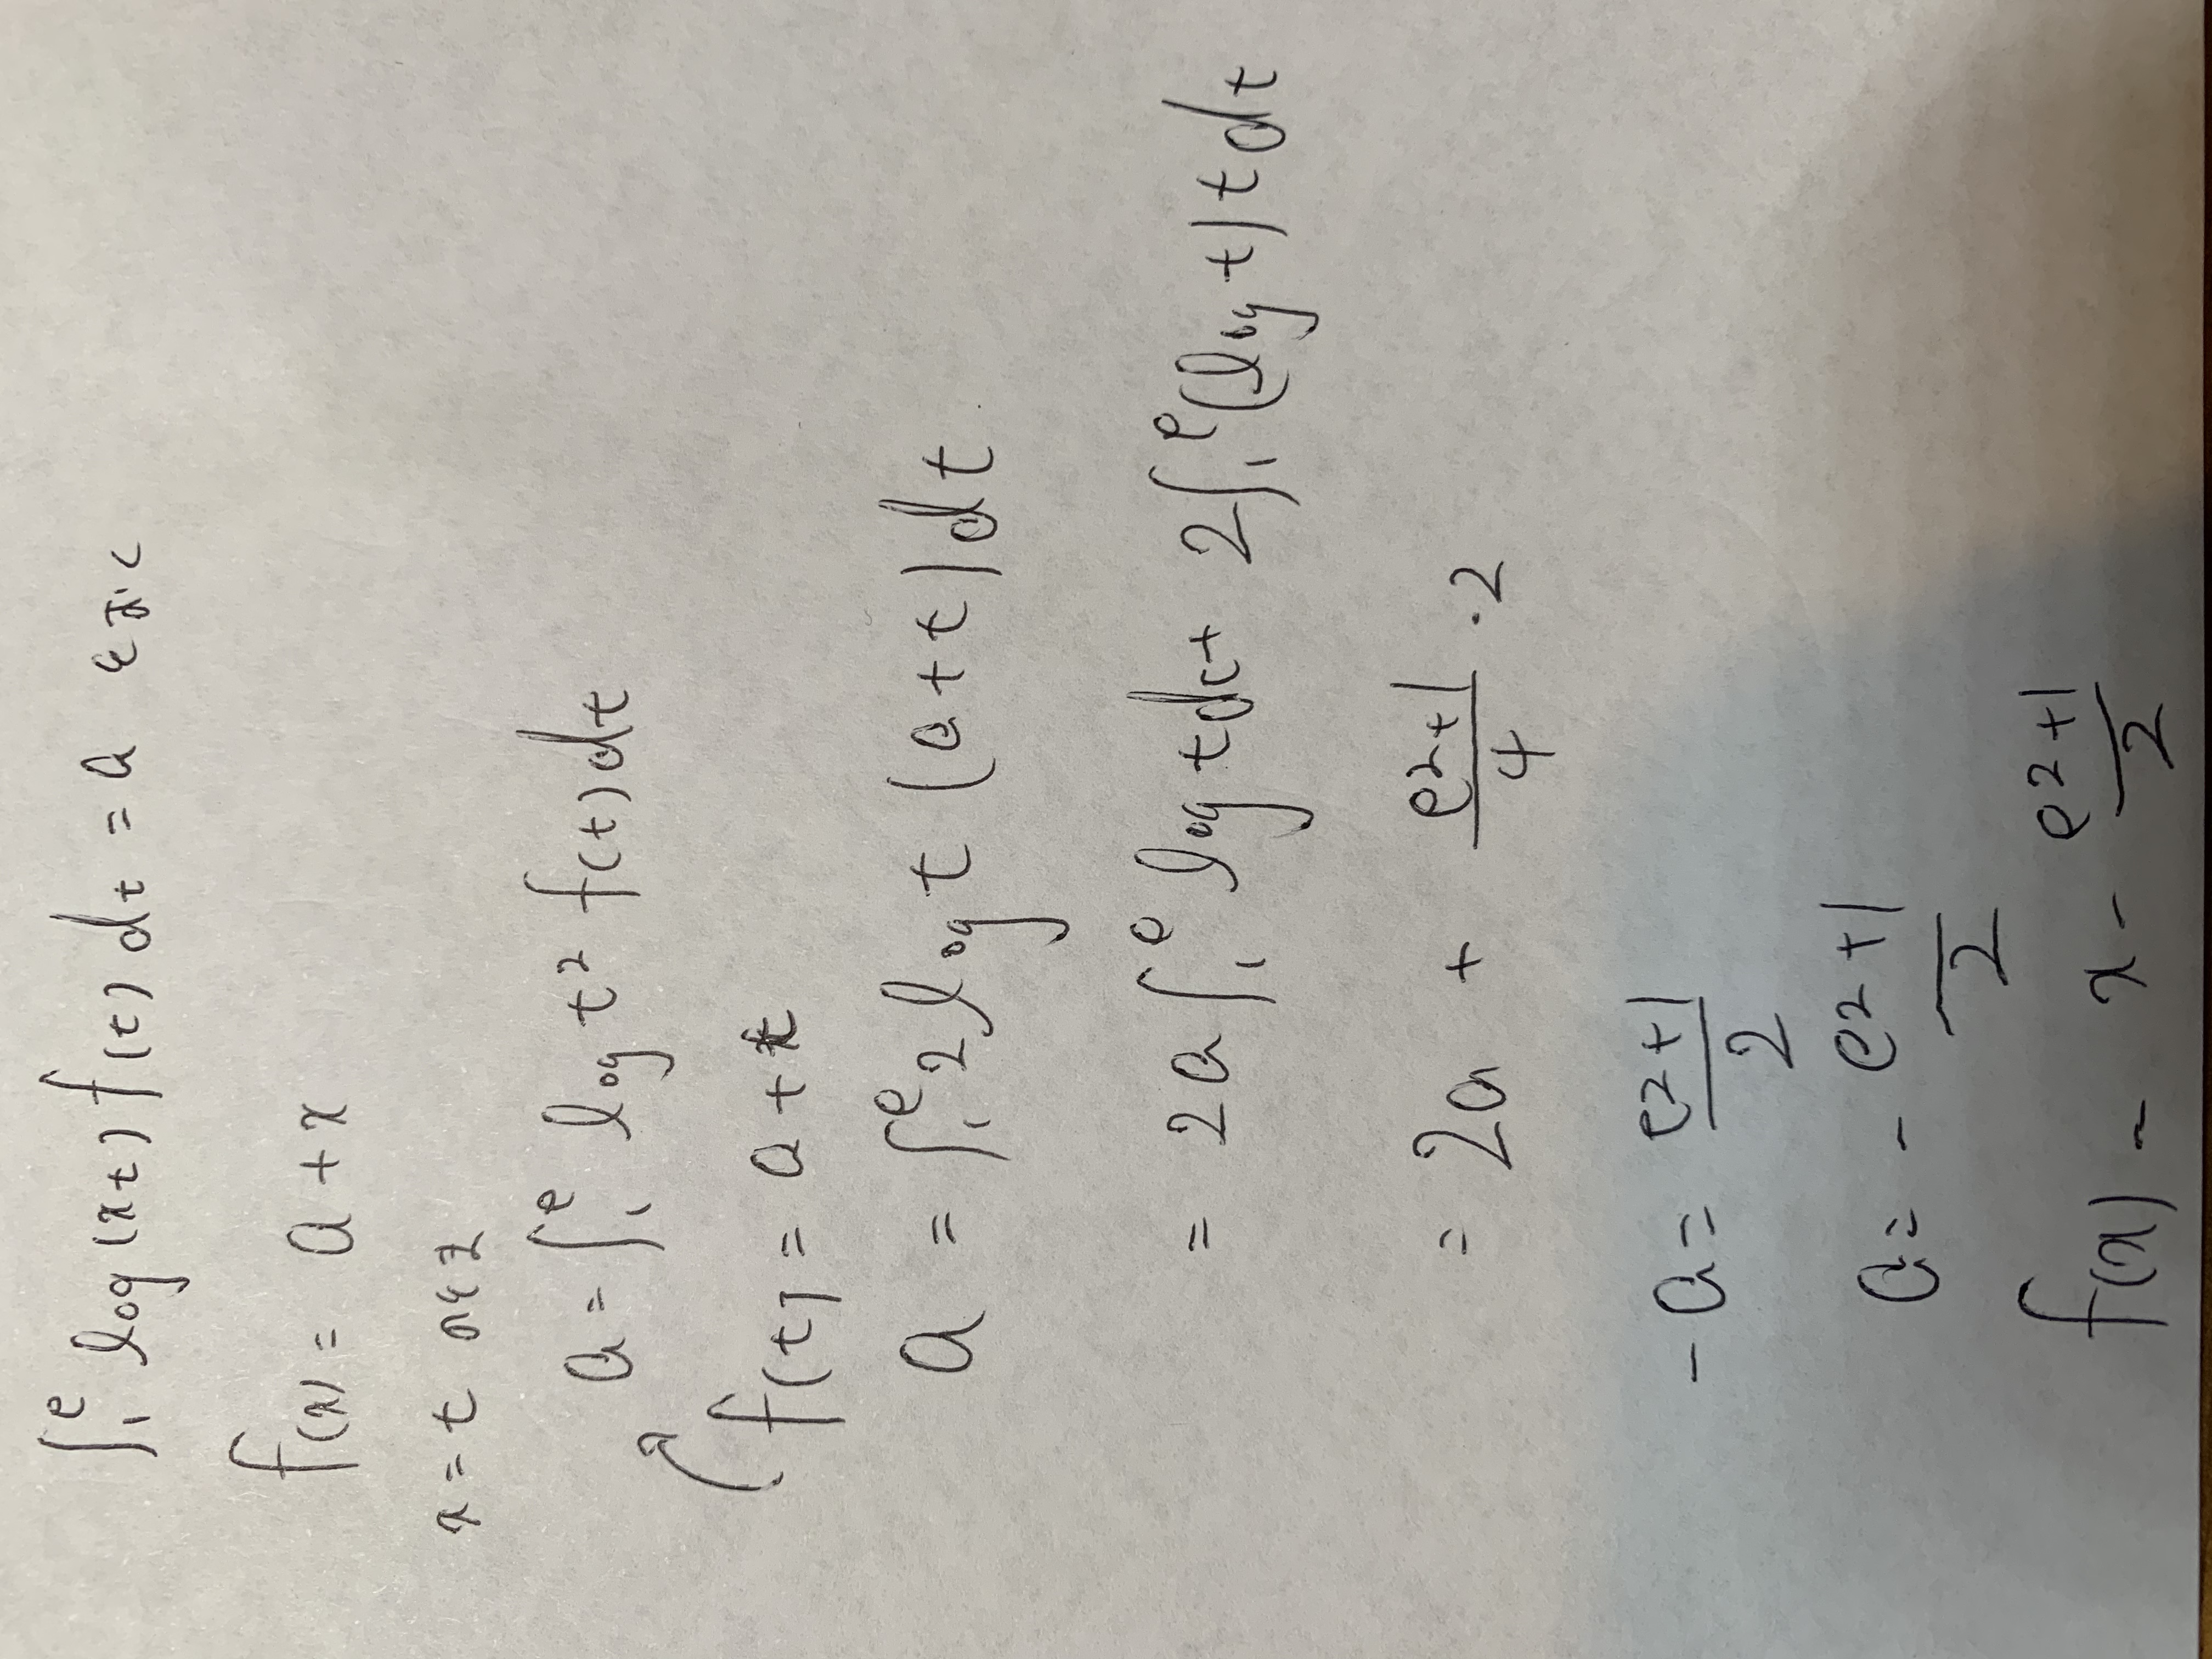 ∫₁ᵉ log(xt)f(t)dt = a とおく
f(x) = a+x
x=t のとき
a = ∫₁ᵉ log t² f(t)dt
f(t) = a+t
a = ∫₁ᵉ 2log t (a+t)dt
= 2a∫₁ᵉ log t dt + 2∫₁ᵉ(log t)t dt
= 2a + (e²+1)/4 · 2
-a = (e²+1)/2
a = - (e²+1)/2
f(x) = x - (e²+1)/2